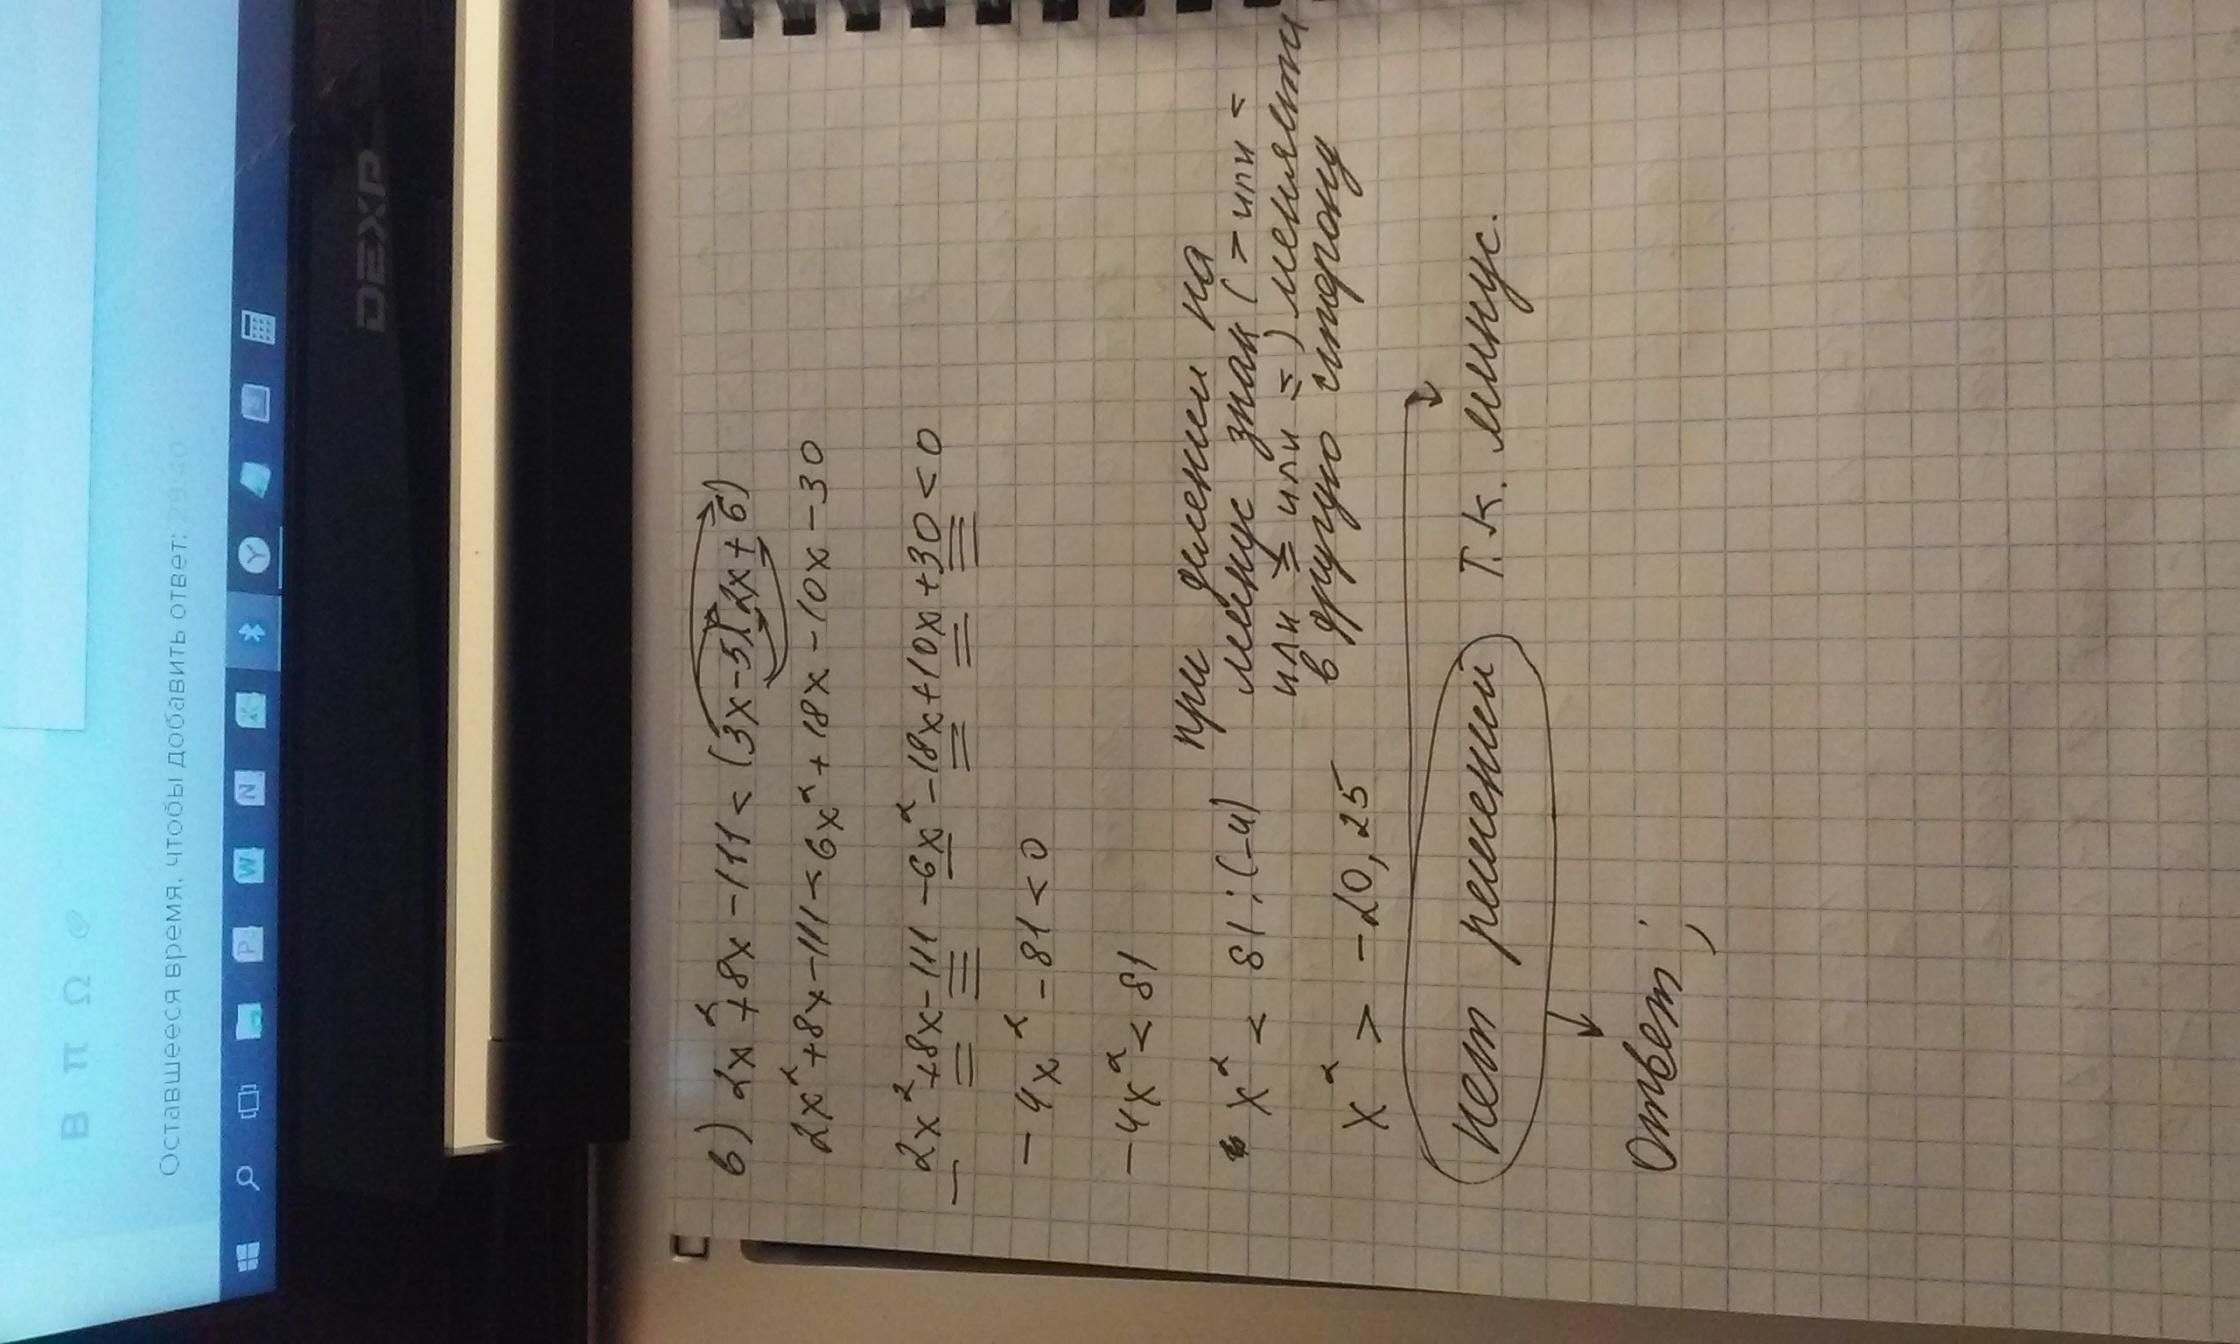 B π Ω
Оставшееся время, чтобы добавить ответ: 29:40
DEXP
в) 2x²+8x-111<(3x-5)(2x+6)
2x²+8x-111<6x²+18x-10x-30
2x²+8x-111-6x²-18x+10x+30<0
-4x²-81<0
-4x²<81
x² < 81:(-4)
при делении на
минус знак (> или <
или ≥ или ≤) меняется
в другую сторону
x² > -20,25
нет решений т.к. минус.
Ответ: